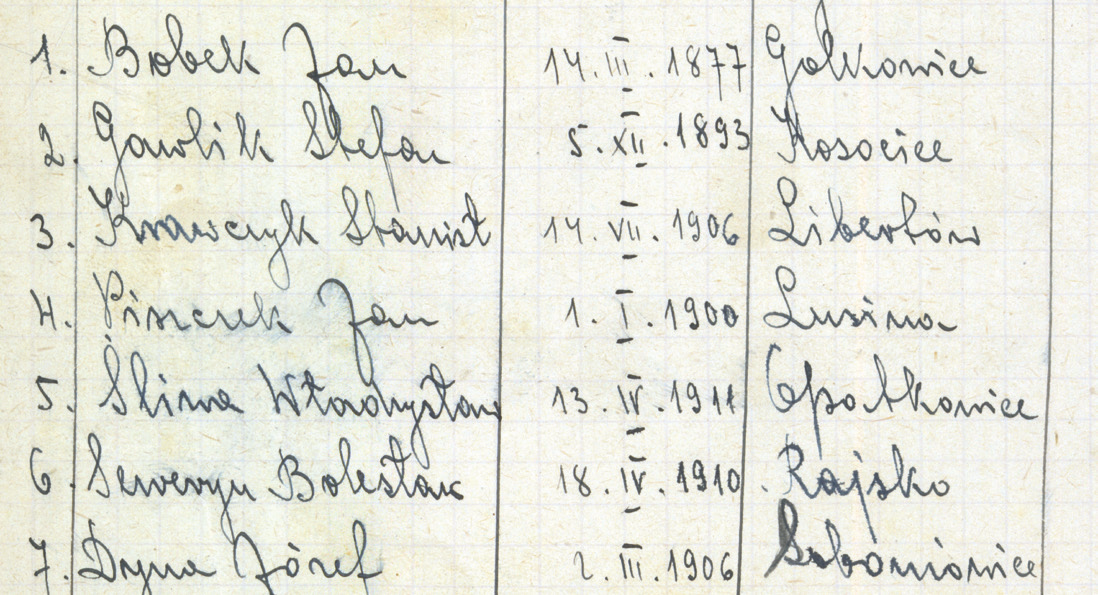 1. Bobek Jan 14.III.1877 Golkowice
2. Gawlik Stefan 5.XII.1893 Kosocice
3. Krawczyk Stanisł 14.VII.1906 Libertów
4. Piszczek Jan 1.I.1900 Lusina
5. Śliwa Władysław 13.IV.1911 Opatkowice
6. Seweryn Bolesław 18.IV.1910 Rajsko
7. Dyna Józef 2.III.1906 Soboniowice